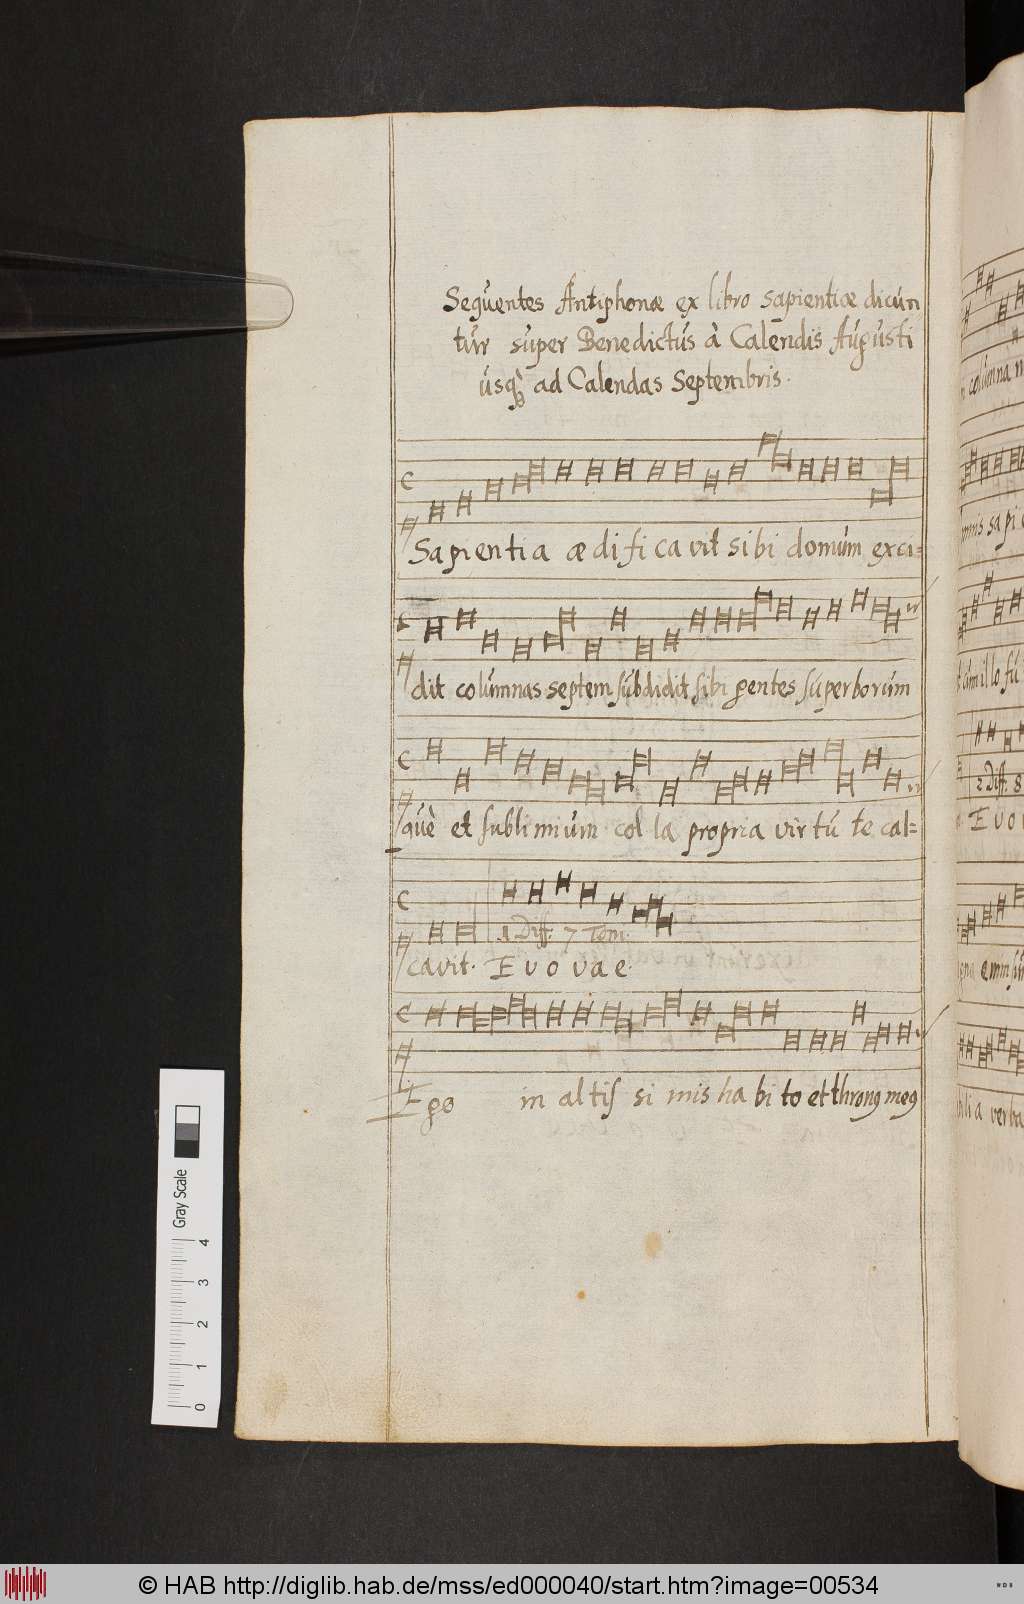 Sequentes Antiphonæ ex libro sapientiæ dicun
tur super Benedictus à Calendis Augusti
usq; ad Calendas Septembris.
Sapientia ædificavit sibi domum exci=
dit columnas septem subdidit sibi gentes superborum
què et sublimium colla propria virtute cal=
1 Diff. 7 Tom.
cavit. E v o v a e.
Ego in altissimis habito et thronq meq
columna
2 Diff. 8
E v o v
verba
Gray Scale
0 1 2 3 4
© HAB http://diglib.hab.de/mss/ed000040/start.htm?image=00534